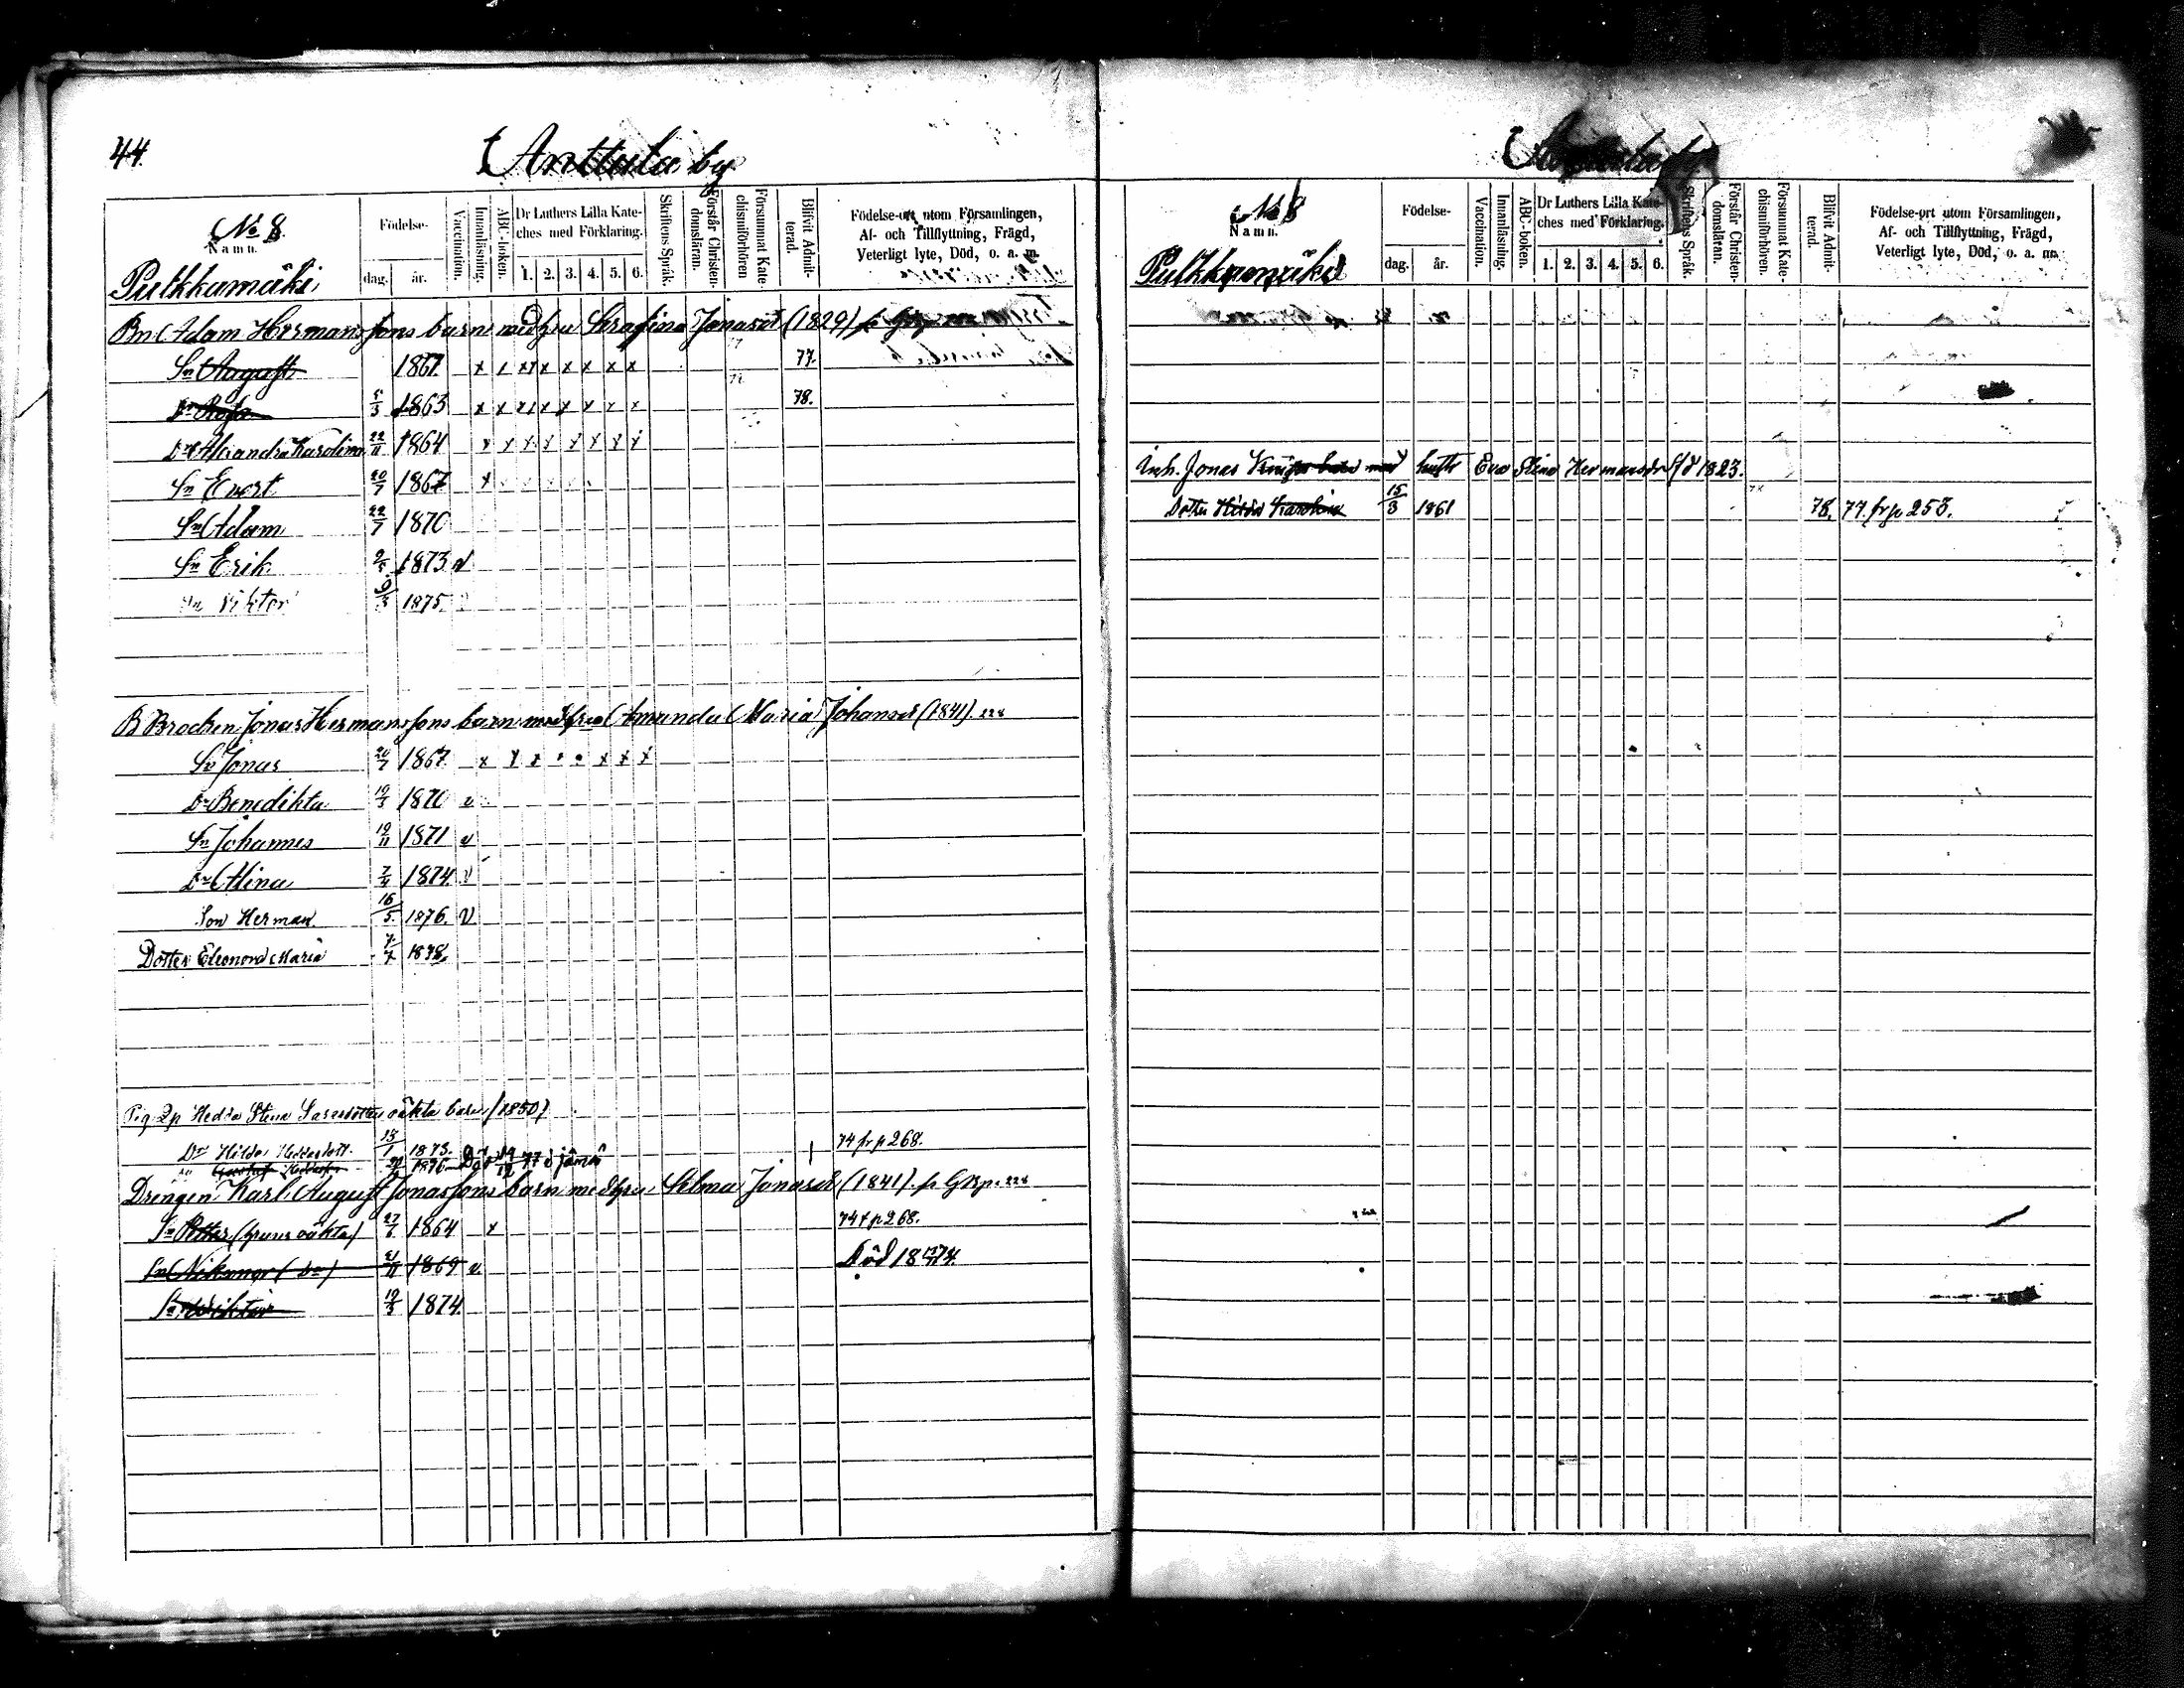 44.
Anttula by
No 8.
Namn.
Pulkkamäki
Födelse-
dag.
år.
Vaccination.
Innanläsning.
ABC-boken.
Dr Luthers Lilla Kate-
ches med Förklaring.
1. 2. 3. 4. 5. 6.
Skriftens Språk.
Förstår Christen-
domsläran.
Försummat Kate
chismiförhören
Blifvit Admit-
terad.
Födelse-ort utom Församlingen,
Af- och Tillflyttning, Frägd,
Veterligt lyte, Död, o. a. m.
Bn Adam Hermanssons barn med hu Serafina Jonasd (1829)
Sn August 1861. x x x x x x x 77.
Dr Rosa 5/3 1863 x x x x x x x x 78.
Dr Alexandra Karolina 22/11 1864 x x x x x x x x
Sn Evert 20/7 1867 x
Sn Adam 22/7 1870
Sn Erik 1873 v
Sn Viktor 9/3 1875.
B Brodren Jonas Hermanssons barn med hu Amanda Maria Johansd (1841). 228
Sn Jonas 20/7 1867 x x x • • x x x
Dr Benedikta 19/3 1870 v
Sn Johannes 19/11 1871 v
Dr Alina 7/4 1874 v
Son Herman. 16/5. 1876. V
Dotter Eleonora Maria 7/7 1878.
Pig. Qp Hedda Stina oäkta barn (1850)
Dr Hilda Heddasdott. 13/1 1873. 74 fr p 268.
Gustaf Heddason 1876 Död 19/12 77
Drengen Karl August Jonassons barn med hu Selma Jonasd (1841). 228
Sn Petter (hruns oäkta) 27/6 1864 x 74 fr p 268.
Sn Nikanor (Do) 21/11 1869 v. Död 18 74.
Sn Wiktor 19/3 1874.
No 8
Namn.
Pulkkamäki
Födelse-
dag.
år.
Vaccination.
Innanläsning.
ABC-boken.
Dr Luthers Lilla Kate-
ches med Förklaring.
1. 2. 3. 4. 5. 6.
Skriftens Språk.
Förstår Christen-
domsläran.
Försummat Kate-
chismiförhören.
Blifvit Admit-
terad.
Födelse-ort utom Församlingen,
Af- och Tillflyttning, Frägd,
Veterligt lyte, Död, o. a. m.
Inh. Jonas med hustr Eva Stina Hermansdr f d 1823.
Dotter Hilda Karolina 15/3 1861 78. 77. fr p 253.